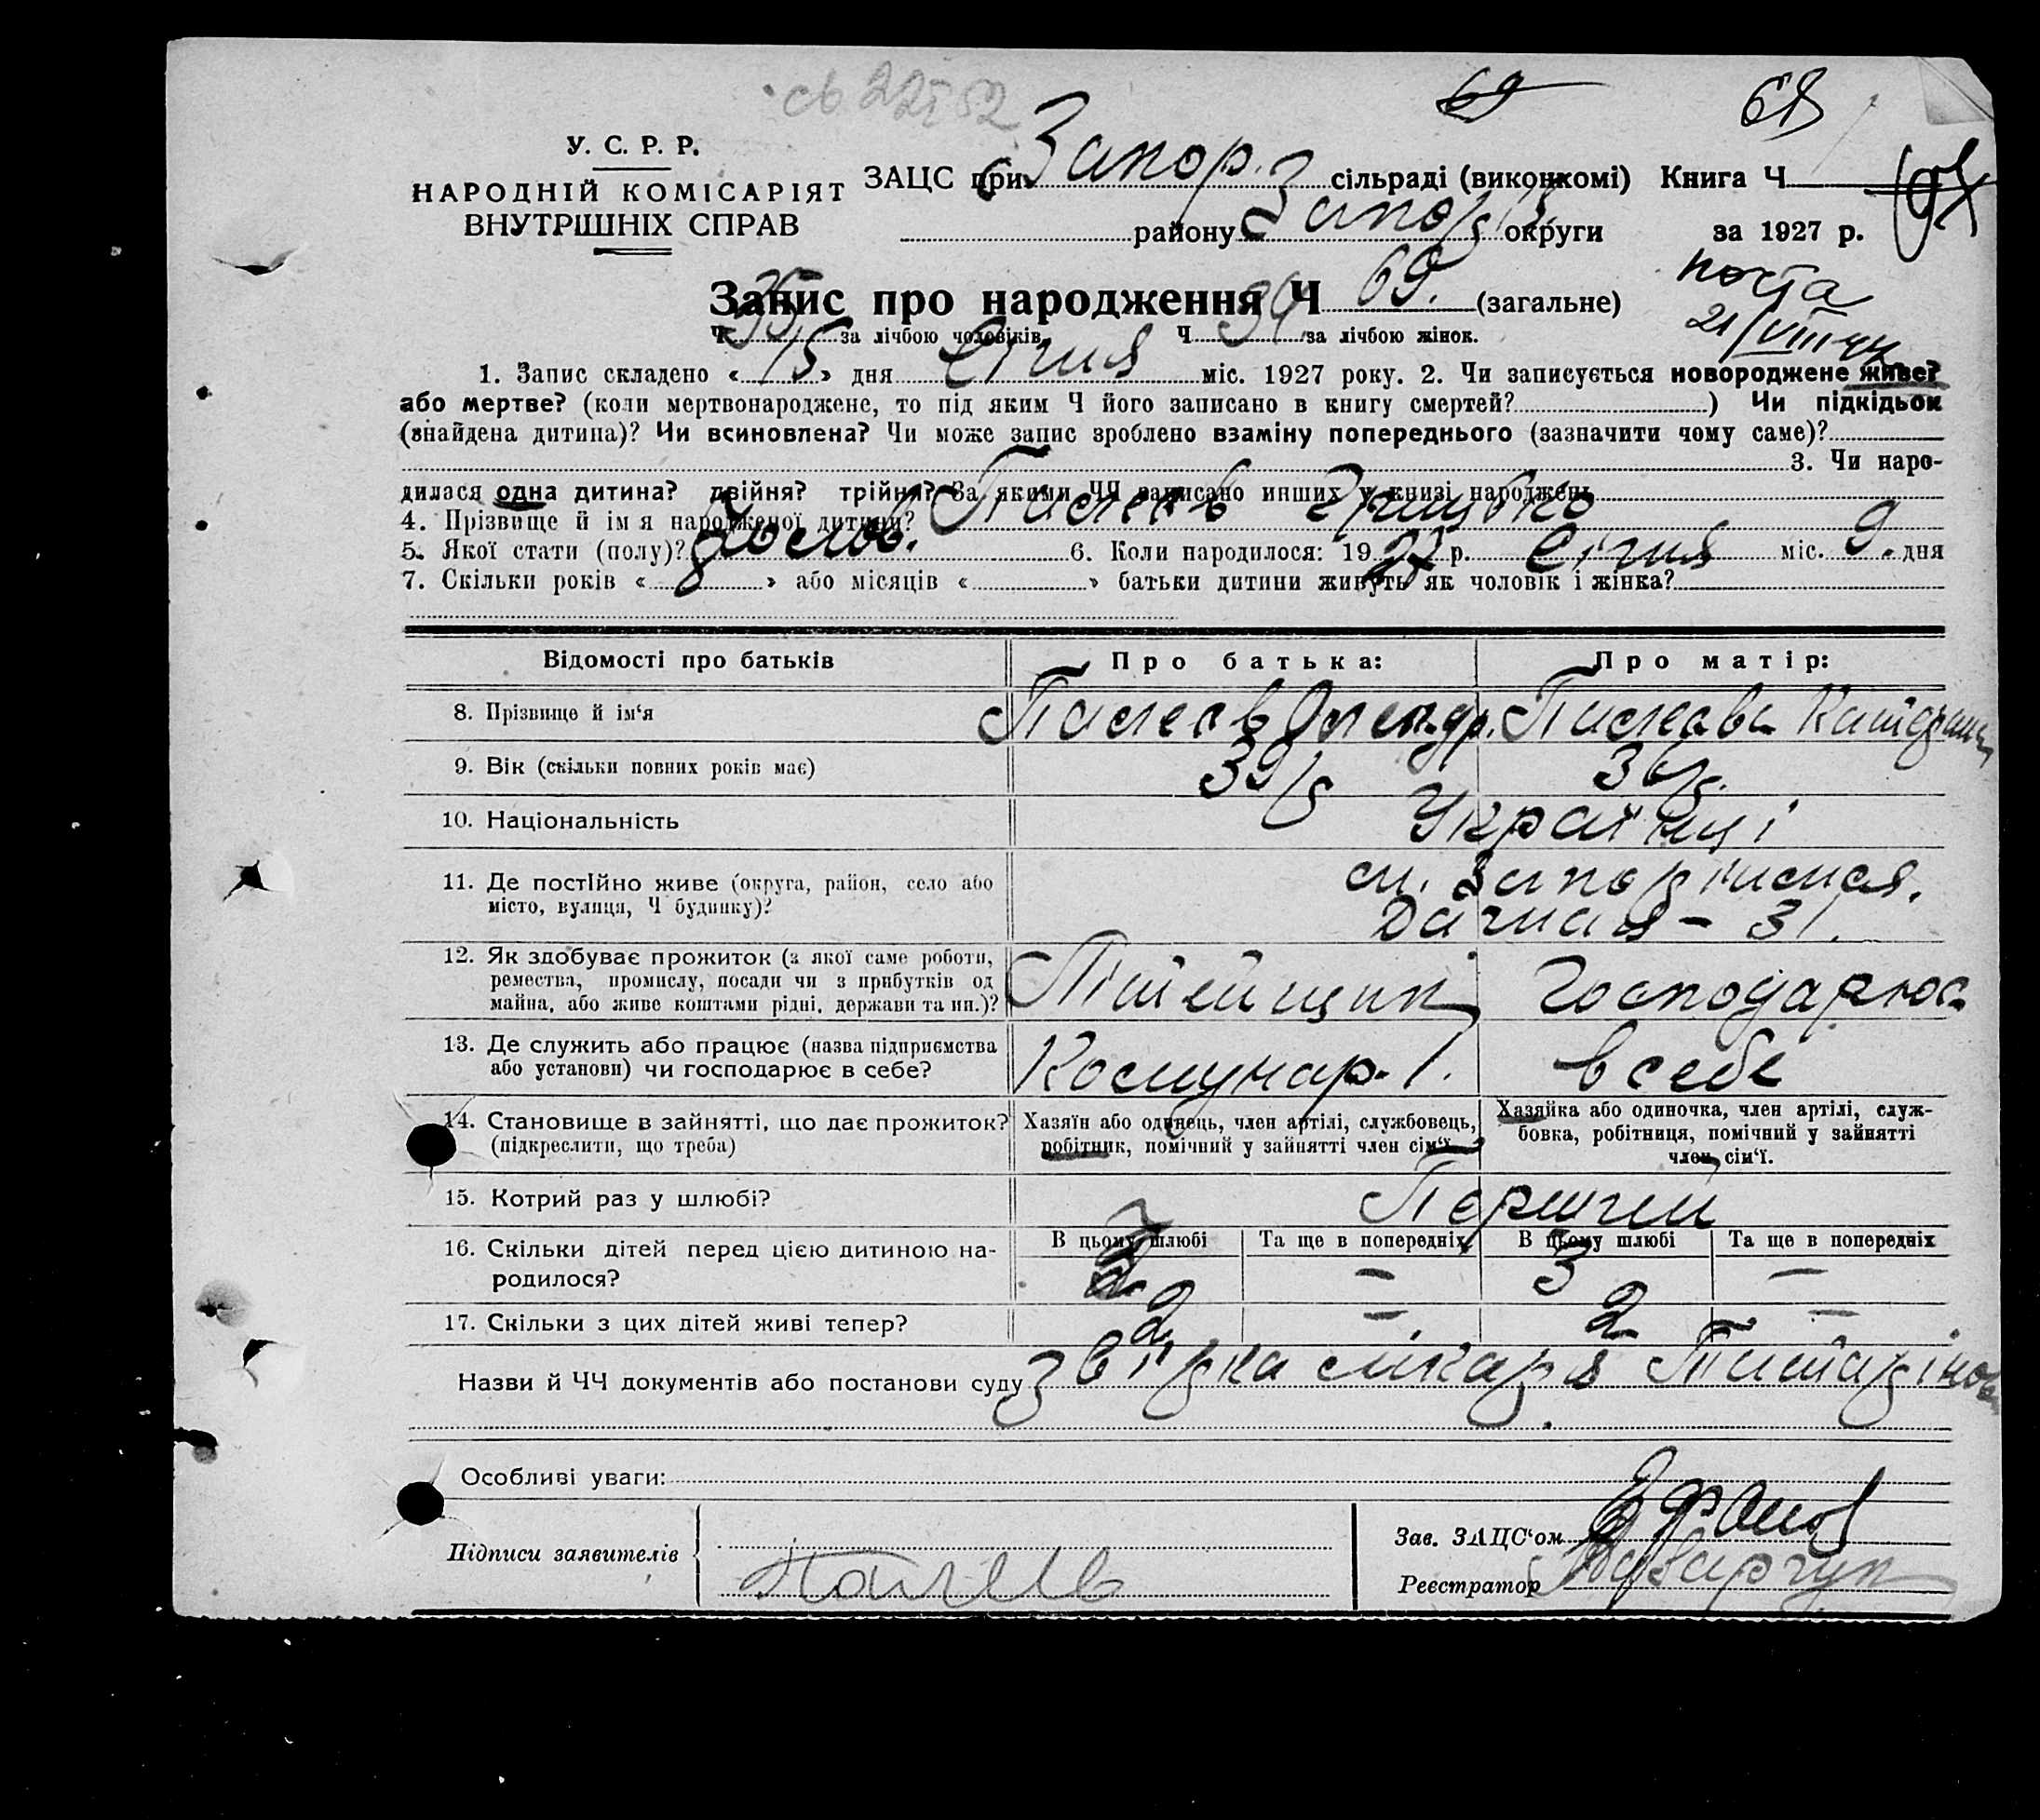 св 22 I 52
69 68
У. С. Р. Р.
НАРОДНІЙ КОМІСАРІЯТ
ВНУТРІШНІХ СПРАВ
ЗАЦС при Запор. сільраді (виконкомі) Книга Ч
району Запоріз. округи за 1927 р.
пошта
21/VIII 44
Запис про народження Ч 69. (загальне)
Ч 35 за лічбою чоловіків Ч 34 за лічбою жінок.
1. Запис складено « 15 » дня Січня міс. 1927 року. 2. Чи записується новороджене живе?
або мертве? (коли мертвонароджене, то під яким Ч його записано в книгу смертей? ) Чи підкідьок
(знайдена дитина)? Чи всиновлена? Чи може запис зроблено взаміну попереднього (зазначити чому саме)?
3. Чи наро-
дилася одна дитина? двійня? трійня? За якими ЧЧ записано инших у книзі народжень
4. Прізвище й імя народженої дитини? Палєєв
5. Якої стати (полу)? Чолов. 6. Коли народилося: 1927 р. Січня міс. 9. дня
7. Скільки років « 8 » або місяців « » батьки дитини живуть як чоловік і жінка?
Відомості про батьків Про батька: Про матір:
8. Прізвище й ім‘я Палєєв Олександр. Палєєва Катерина
9. Вік (скільки повних років має) 39 р 36 р.
10. Національність Українці
11. Де постійно живе (округа, район, село або
місто, вулиця, Ч будинку)? м. Запоріжжя.
Дачная - 31.
12. Як здобуває прожиток (з якої саме роботи,
ремества, промислу, посади чи з прибутків од
майна, або живе коштами рідні, держави та ин.)? Літейщик Господарює
13. Де служить або працює (назва підприємства
або установи) чи господарює в себе? Комунар. 1. в себе
14. Становище в зайнятті, що дає прожиток?
(підкреслити, що треба)
Хазяїн або одинець, член артілі, службовець,
робітник, помічний у зайнятті член сім‘ї
Хазяйка або одиночка, член артілі, служ-
бовка, робітниця, помічний у зайнятті
член сім‘ї.
15. Котрий раз у шлюбі? Перший
16. Скільки дітей перед цією дитиною на-
родилося?
В цьому шлюбі Та ще в попередніх В цьому шлюбі Та ще в попередніх
3 — 3 —
17. Скільки з цих дітей живі тепер? 2 — 2 —
Назви й ЧЧ документів або постанови суду Звірка лікаря
Особливі уваги:
Підписи заявителів Палєєв
Зав. ЗАЦС‘ом
Реєстратор